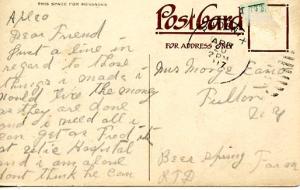 THIS SPACE FOR MESSAGES
Dear Friend
Just a line in
regard to those
things i made i
would like the money
as they are done
and i need all i
can get as Fred is
at Hospital
and i am alone
dont think he can
Post Card
FOR ADDRESS ONLY
APR
PM
Mrs
Fulton
N Y
Beer Spring Farm
RFD